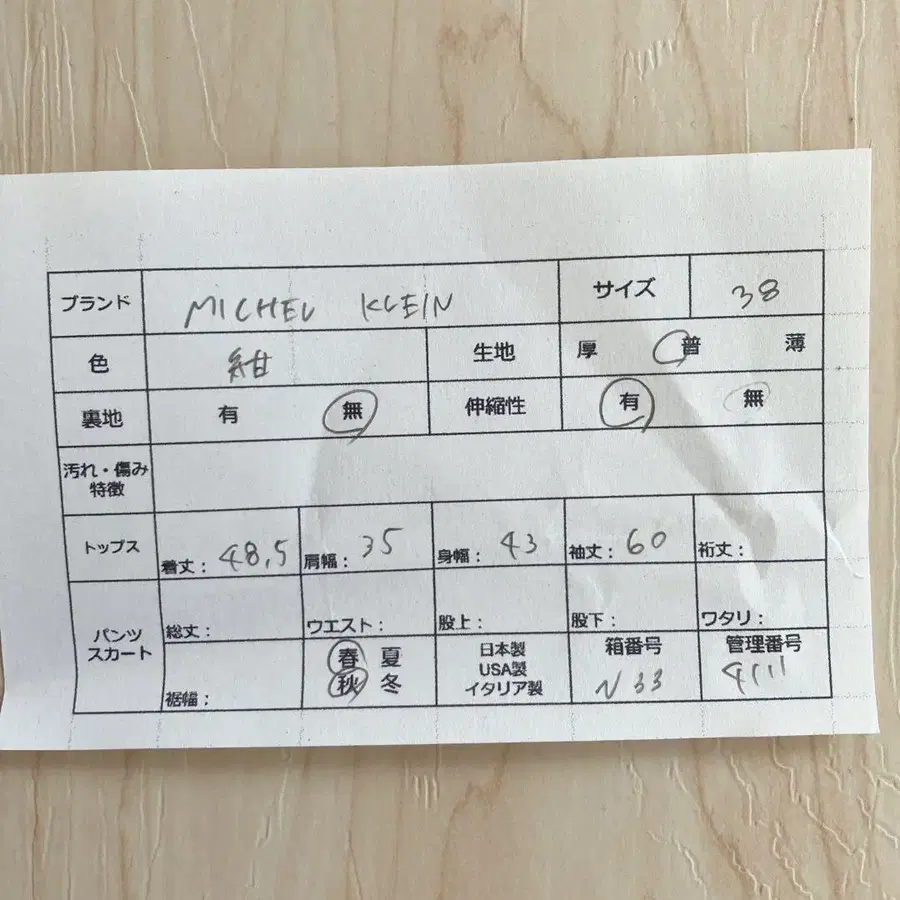 ブランド MICHEL KLEIN サイズ 38
色 紺 生地 厚 普 薄
裏地 有 無 伸縮性 有 無
汚れ・傷み
特徴
トップス 着丈： 48,5 肩幅： 35 身幅： 43 袖丈： 60 裄丈：
パンツ
スカート
総丈： ウエスト： 股上： 股下： ワタリ：
裾幅：
春 夏
秋 冬
日本製
USA製
イタリア製
箱番号
N 33
管理番号
4111